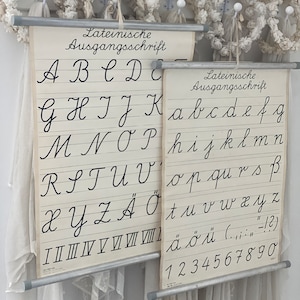 Lateinische
Ausgangsschrift
A B C D
G H I J K
M N O P
R S T U V
X Y Z Ä Ö
I II III IV V VI VII VIII
Lateinische
Ausgangsschrift
a b c d e f g
h i j k l m n
o p q u r s ß
t u v w x y z
ä ö ü (.,:;„“-!?)
1 2 3 4 5 6 7 8 9 0